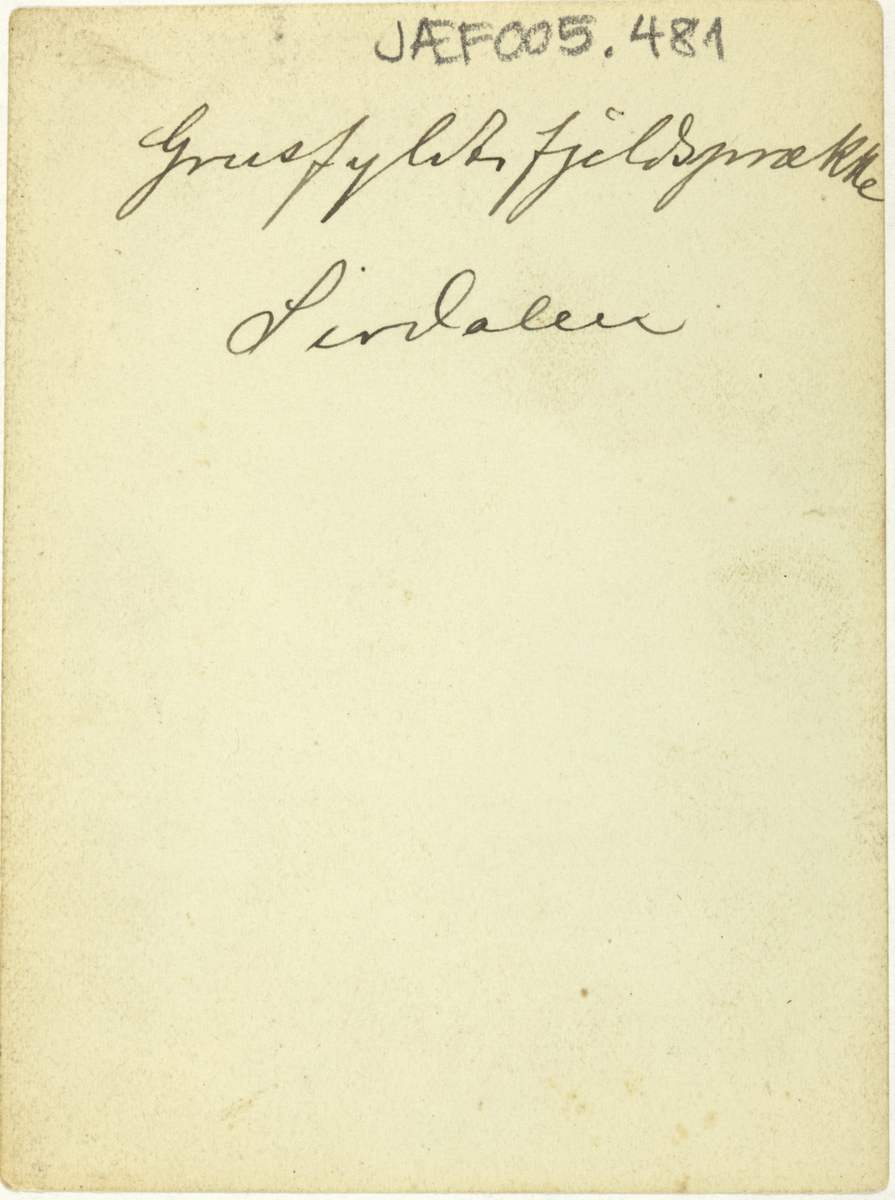 JÆF005.481
Grusfyldt fjeldsprække
Sirdalen